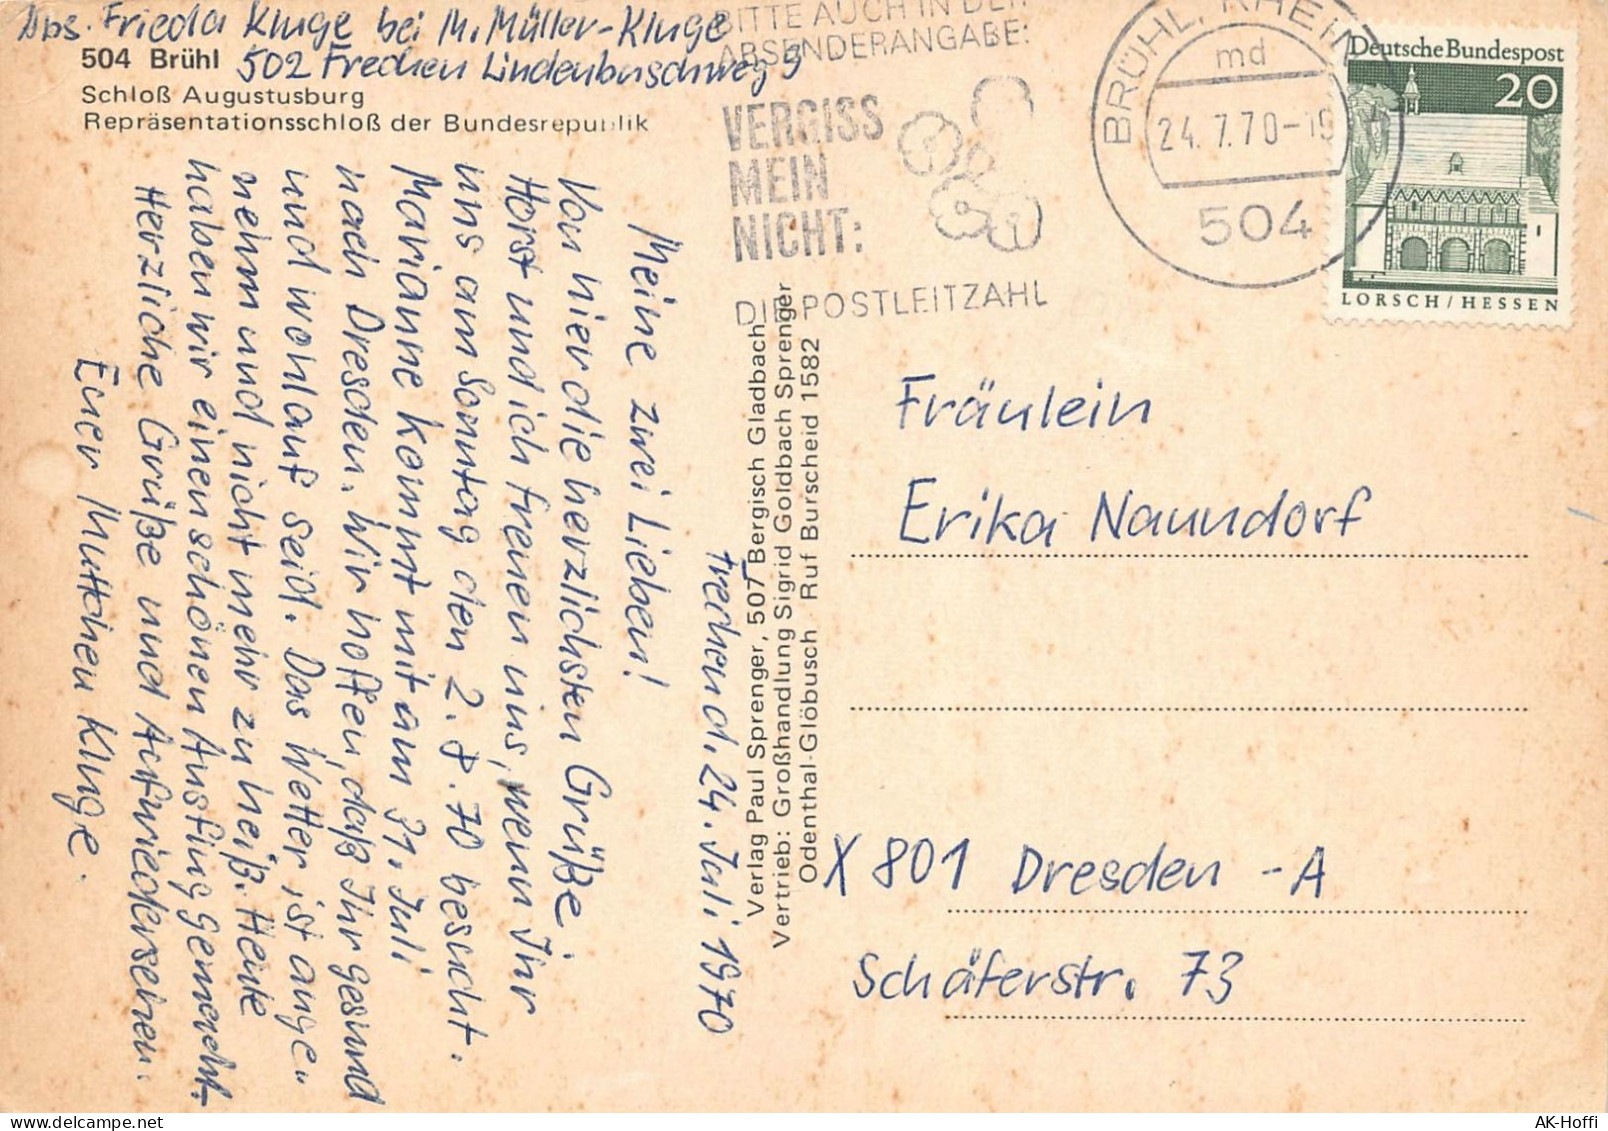 Abs. Frieda Kluge bei M. Müller-Kluge
504 Brühl 502 Frechen Lindenbuschweg 3
Schloß Augustusburg
Repräsentationsschloß der Bundesrepublik
BITTE AUCH IN DER
ABSENDERANGABE:
VERGISS
MEIN
NICHT:
DIE POSTLEITZAHL
BRÜHL, RHEINL
md
24.7.70-19
504
Deutsche Bundespost
20
LORSCH/HESSEN
Frechend, 24. Juli 1970
Meine zwei Lieben!
Von hier die herzlichsten Grüße,
Horst und ich freuen uns, wenn Ihr
uns am Sonntag den 2.8.70 besucht.
Marianne kommt mit am 31. Juli
nach Dresden. Wir hoffen, daß Ihr gesund
und wohlauf seid. Das Wetter ist ange-
nehm und nicht mehr zu heiß. Heute
haben wir einen schönen Ausflug gemacht.
Herzliche Grüße und Aufwiedersehen.
Euer Muttchen Kluge.
Verlag Paul Sprenger, 507 Bergisch Gladbach
Vertrieb: Großhandlung Sigrid Goldbach Sprenger
Odenthal-Glöbusch · Ruf Burscheid 1582
Fräulein
Erika Naundorf
X 801 Dresden -A
Schäferstr. 73
www.delcampe.net
AK-Hoffi